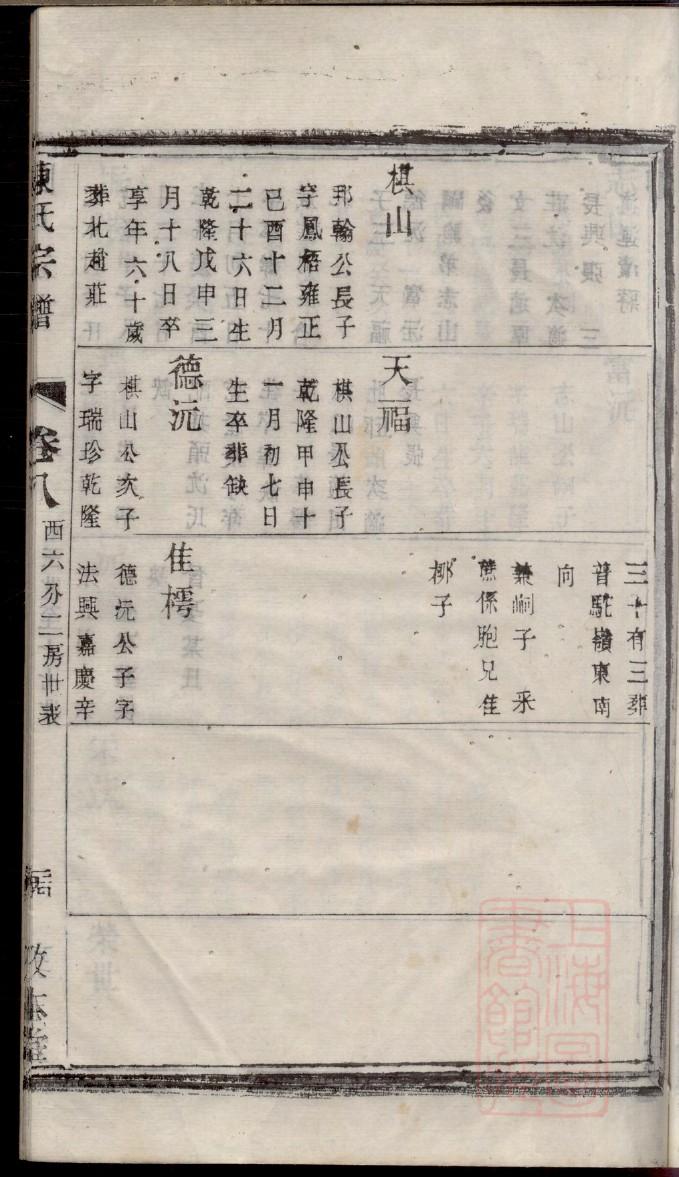 棋山
邦翰公長子
字鳳梧雍正
已酉十二月
二十六日生
乾隆戊申三
月十八日卒
享年六十歲
葬北趙莊
天福
棋山公長子
乾隆甲申十
一月初七日
生卒葬缺
德沅
棋山公次子
字瑞珍乾隆
三十有三葬
普駝嶺東南
向
兼嗣子 采
蕉係胞兄佳
梛子
佳樗
德沅公子字
法興嘉慶辛
陳氏宗譜
卷八
西六分二房世表